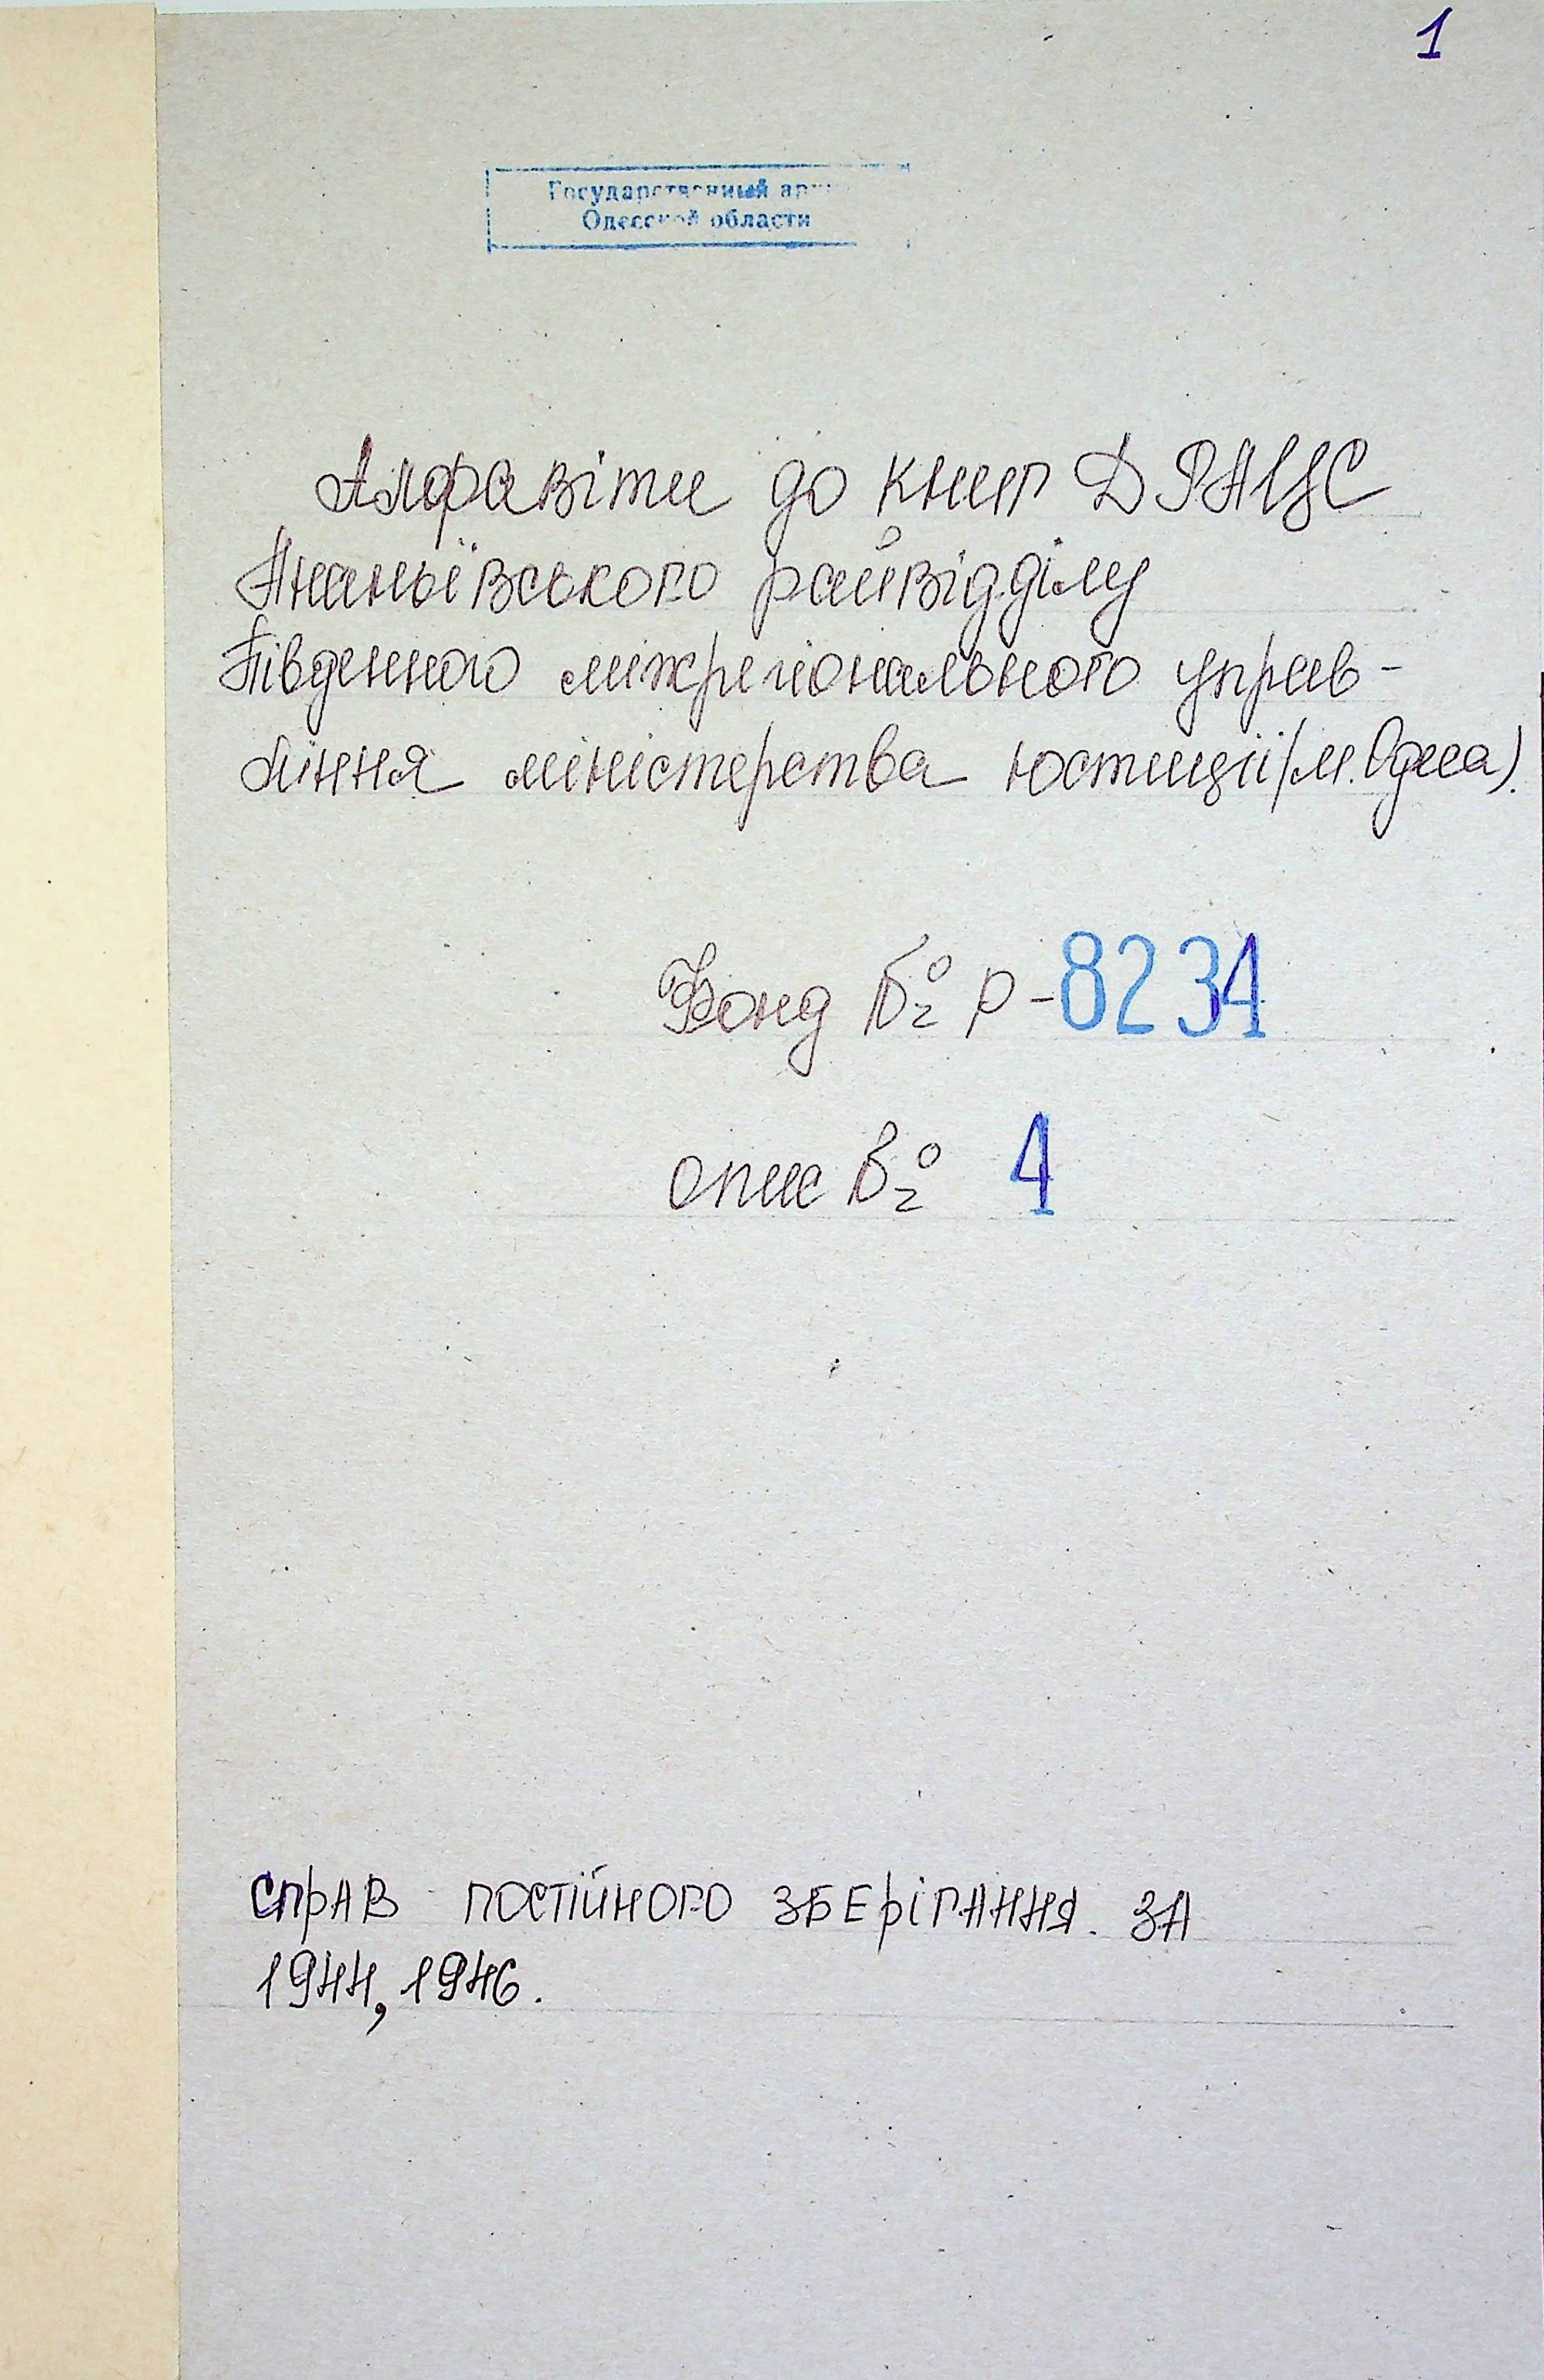 1
Государственный арх
Одесской области
Алфавіти до книг ДРАЦС
Ананьївського райвідділу
Південного міжрегіонального управ-
ління міністерства юстиції (м. Одеса).
Фонд № Р-8234
опис № 4
СПРАВ ПОСТІЙНОГО ЗБЕРІГАННЯ. ЗА
1944, 1946.